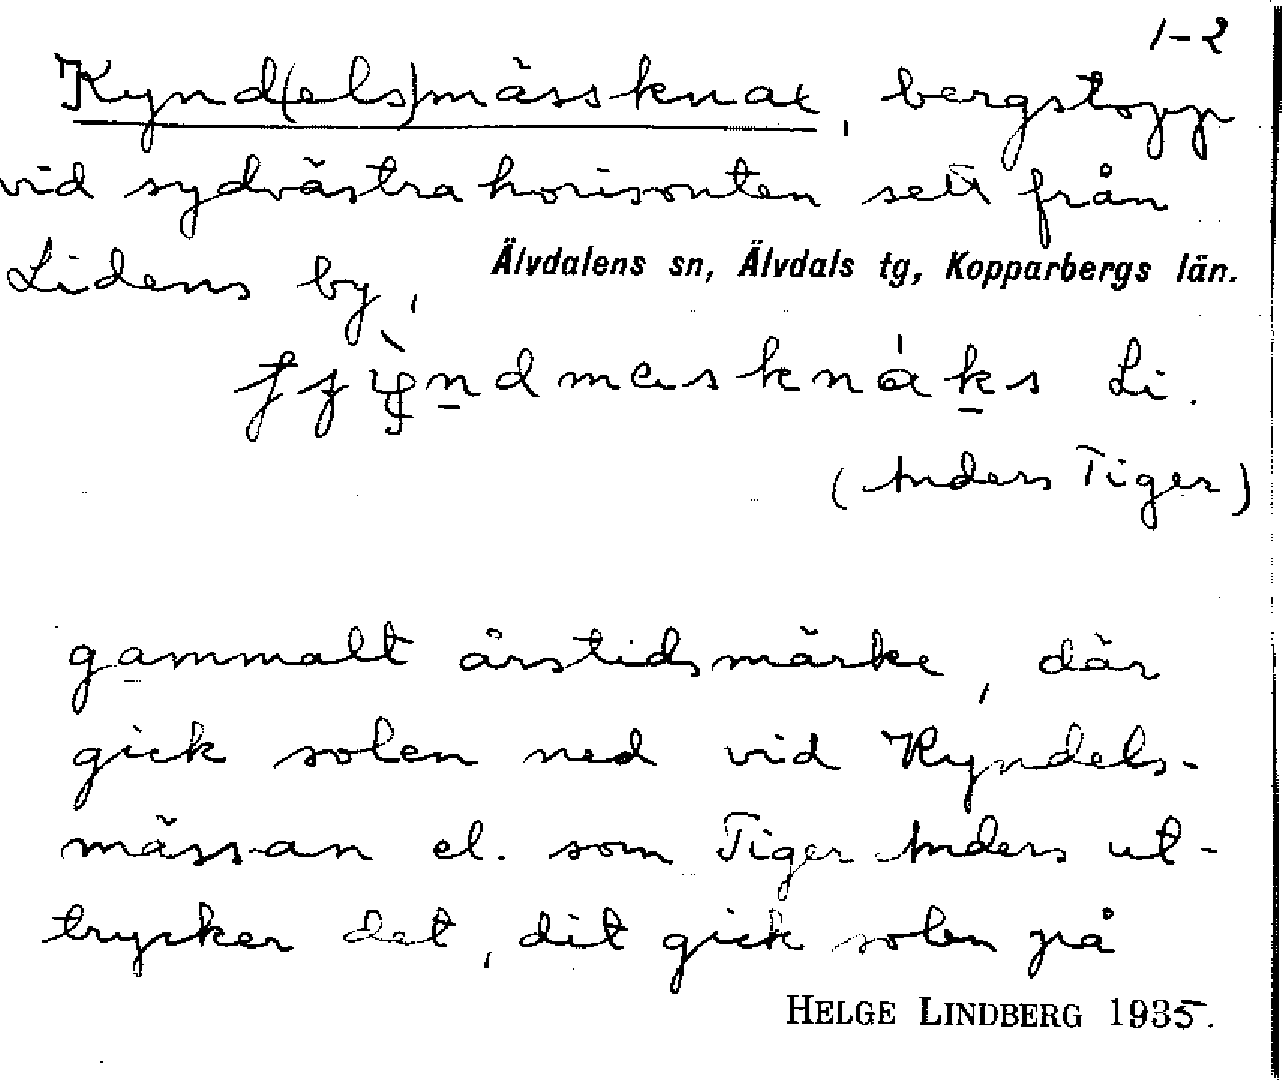 1-2
Kynd(els)mässknax, bergstopp
vid sydvästra horisonten sett från
Lidens by,
Älvdalens sn, Älvdals tg, Kopparbergs län.
Li.
(Anders Tiger)
gammalt årstidsmärke, där
gick solen ned vid Kyndels-
mässan el. som Tiger Anders ut-
trycker det, dit gick solen på
HELGE LINDBERG 1935.